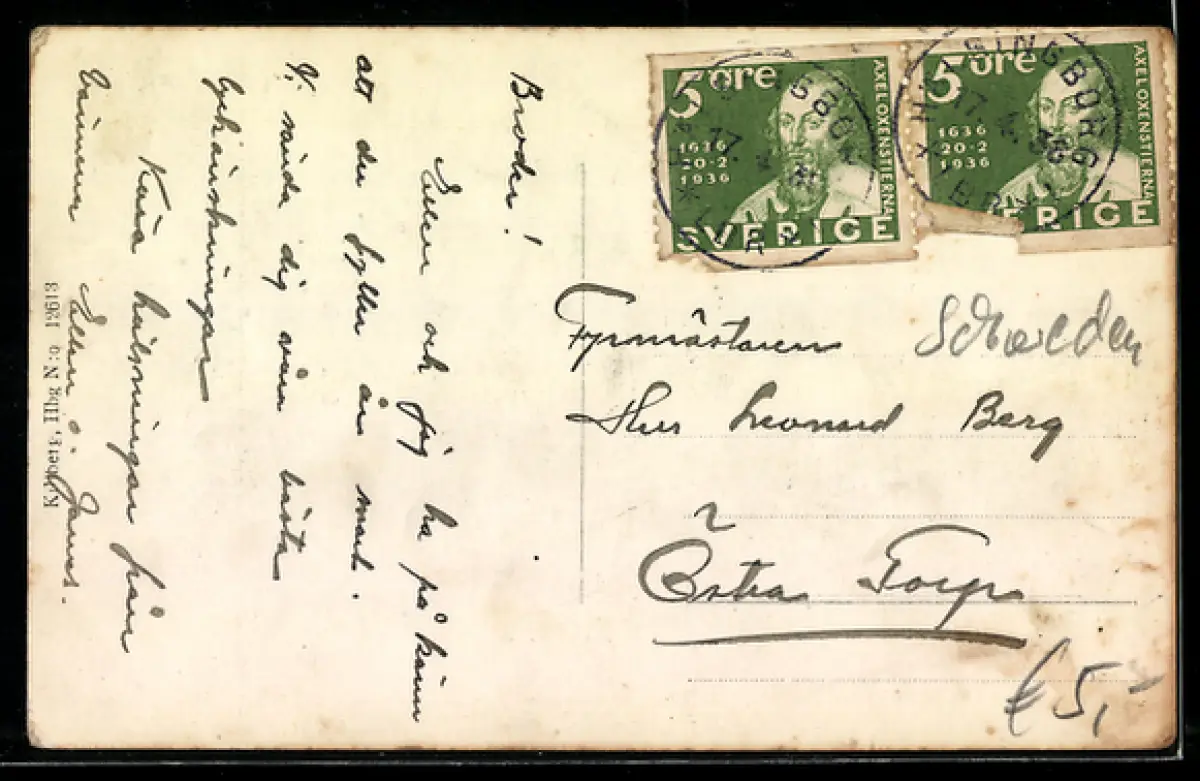 Broder!
Ellen och jag ha på känn
att du fyller år snart.
Vi sända dig våra bästa
lyckönskningar
Kära hälsningar från
vännerna Ellen o. James.
Kbgbers, Hbg N:o 12613
5 öre
1636
20·2
1936
AXEL OXENSTIERNA
SVERIGE
5 öre
1636
20·2
1936
AXEL OXENSTIERNA
SVERIGE
HÄLSINGBORG
17. 36
Schweden
Fyrmästaren
Herr Leonard Berg
Östra Torp
€ 5,-